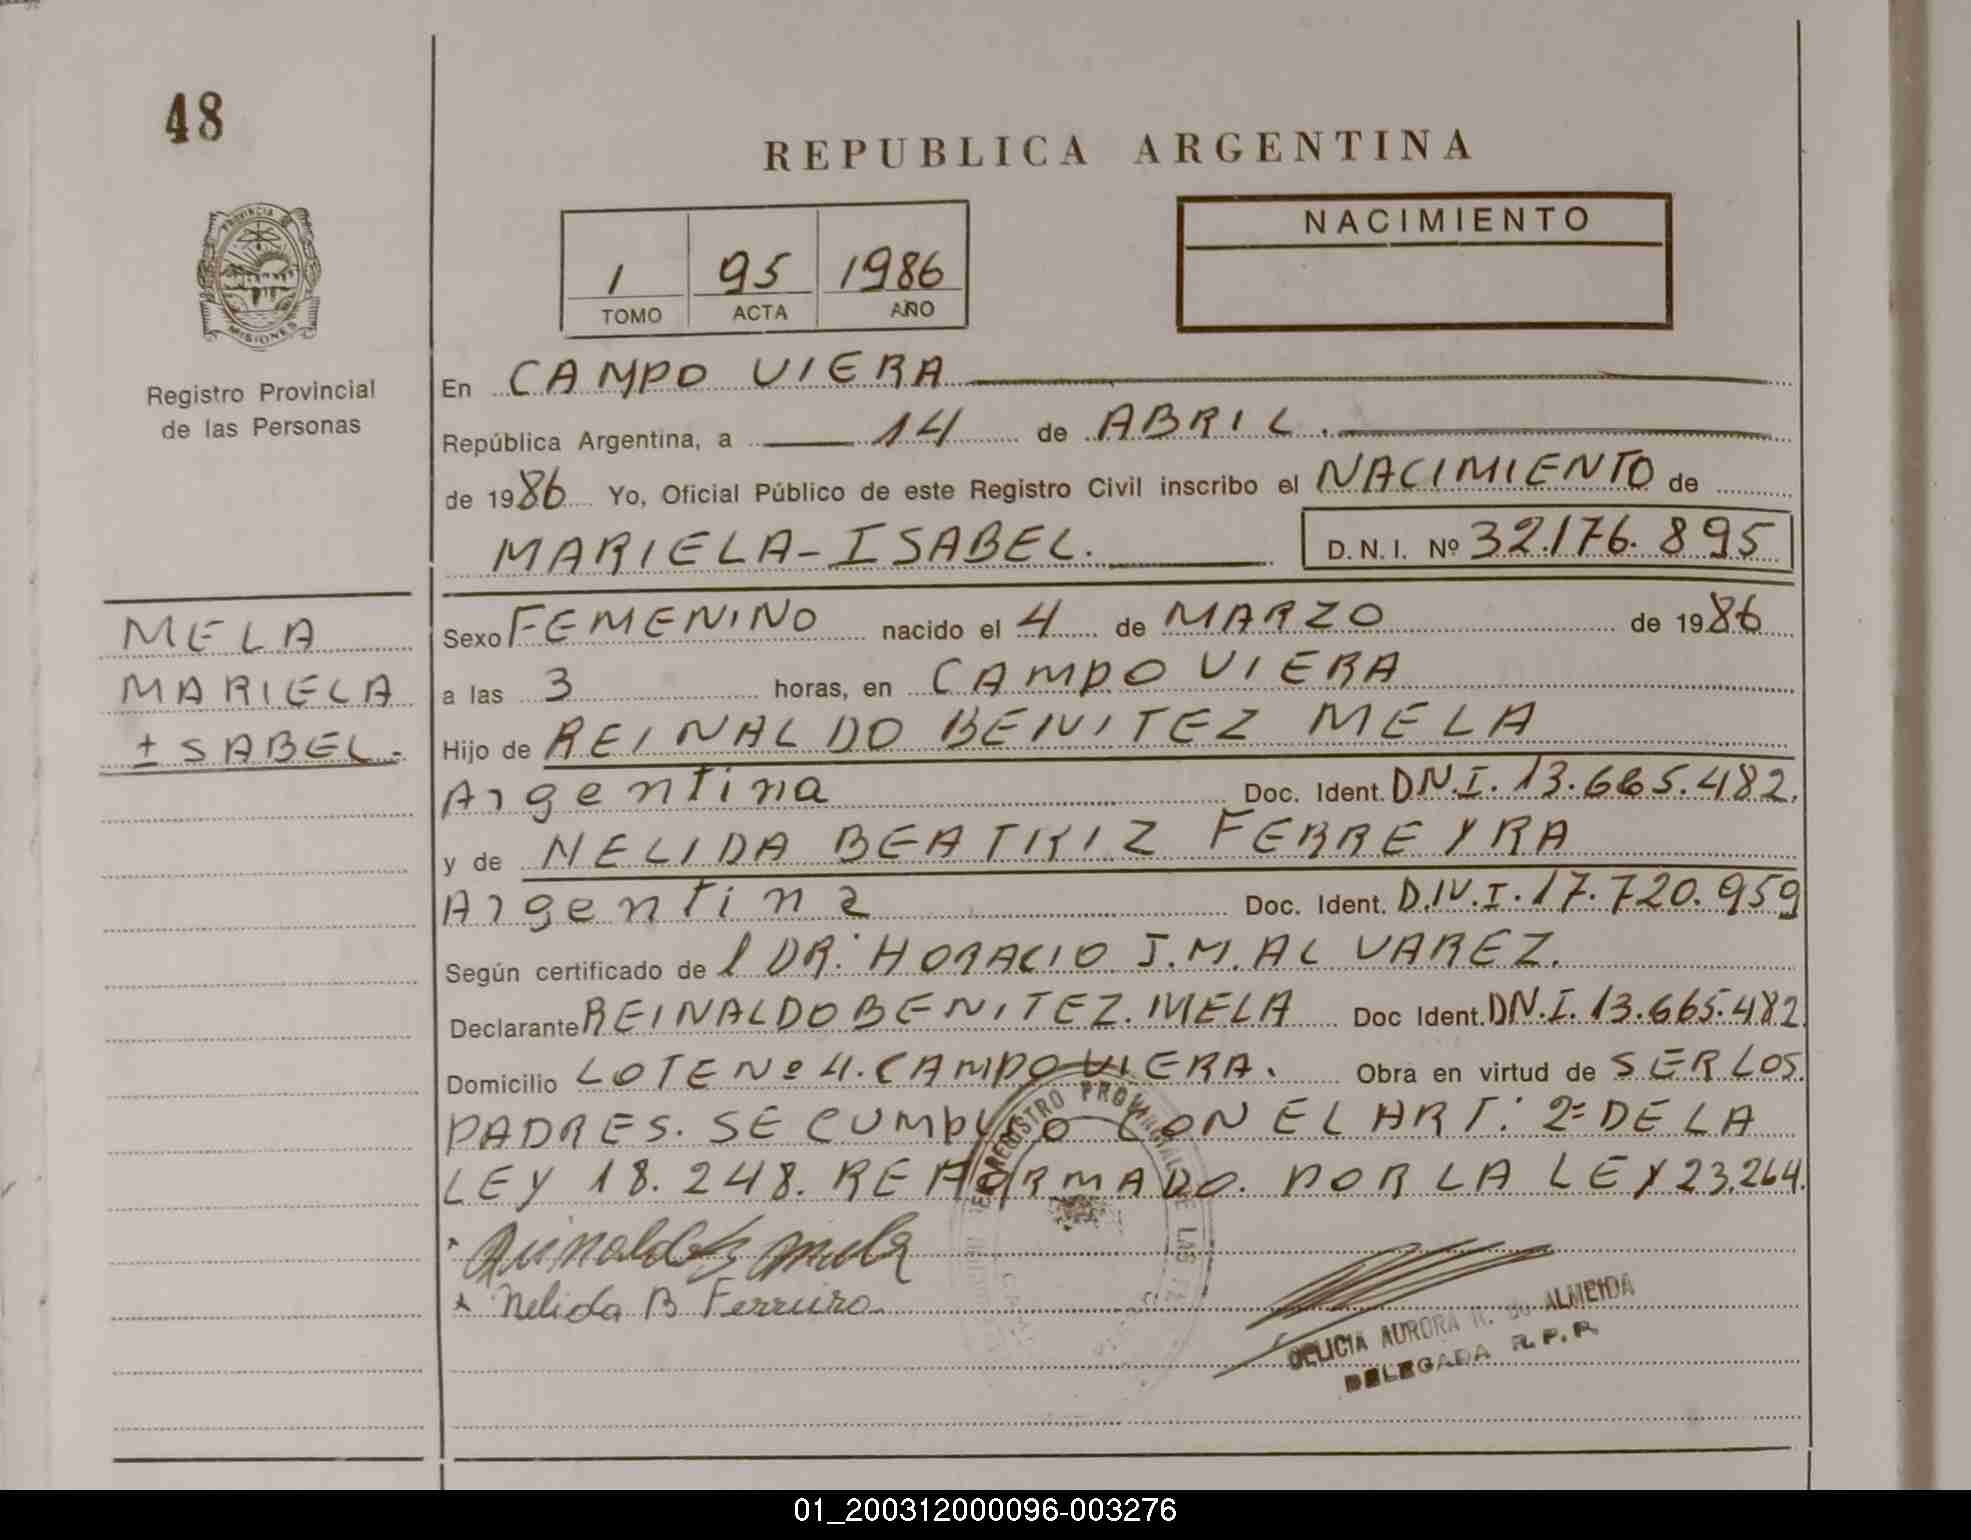 48
REPUBLICA ARGENTINA
PROVINCIA DE
MISIONES
Registro Provincial
de las Personas
1 95 1986
TOMO ACTA AÑO
NACIMIENTO
En CAMPO VIERA
República Argentina, a 14 de ABRIL.
de 1986 Yo, Oficial Público de este Registro Civil inscribo el NACIMIENTO de
MARIELA-ISABEL. D.N.I. Nº 32.176.895
MELA
MARIELA
ISABEL.-
Sexo FEMENINO nacido el 4 de MARZO de 1986
a las 3 horas, en CAMPO VIERA
Hijo de REINALDO BENITEZ MELA
Argentina Doc. Ident. DN.I. 13.665.482.
y de NELIDA BEATRIZ FERREYRA
Argentina Doc. Ident. D.N.I. 17.720.959
Según certificado de l DR: HORACIO J.M. ALVAREZ.
Declarante REINALDO BENITEZ. MELA Doc Ident. DN.I. 13.665.482
Domicilio LOTE Nº 4. CAMPO VIERA. Obra en virtud de SER LOS
PADRES. SE CUMPLIO CON EL ART: 2º DE LA
LEY 18.248. REFORMADO. POR LA LEY 23.264.
Nelida B Ferreira
REGISTRO PROVINCIAL DE LAS
DELICIA AURORA R. de ALMEIDA
DELEGADA R.P.P.
01_200312000096-003276